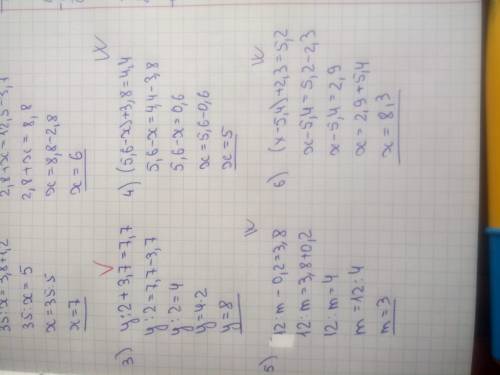 35:x=3,8+1,2
35:x=5
x=35:5
x=7
2,8+x=
2,8+x=8,8
x=8,8-2,8
x=6
3) y:2+3,7=7,7
y:2=7,7-3,7
y:2=4
y=4·2
y=8
4) (5,6-x)+3,8=4,4
5,6-x=4,4-3,8
5,6-x=0,6
x=5,6-0,6
x=5
5) 12:m-0,2=3,8
12:m=3,8+0,2
12:m=4
m=12:4
m=3
6) (x-5,4)+2,3=5,2
x-5,4=5,2-2,3
x-5,4=2,9
x=2,9+5,4
x=8,3